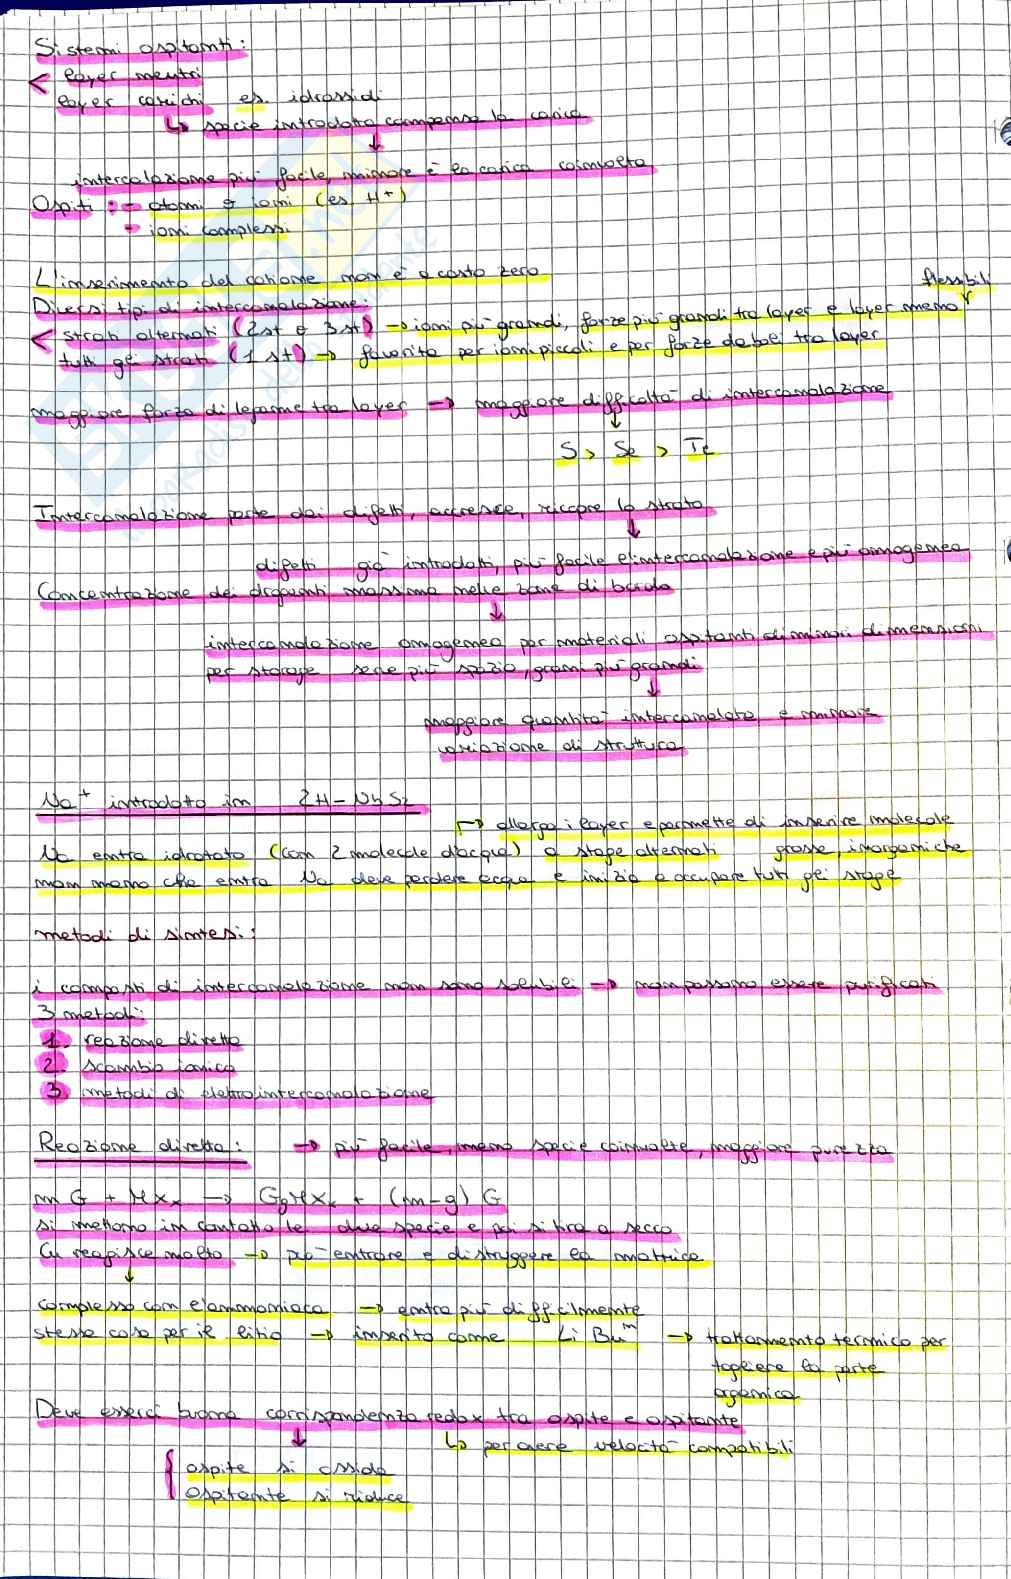 Sistemi ospitanti:
< layer neutri
layer carichi es. idrossidi
↳ specie introdotta compensa la carica
↓
intercalazione più facile, minore è la carica coinvolta
Ospiti: - atomi o ioni (es. H+)
- ioni complessi
L'inserimento del catione non è a costo zero
flessibili
Diversi tipi di intercanalazione:
< strati alternati (2st e 3st) → ioni più grandi, forze più grandi tra layer e layer meno
tutti gli strati (1 st) → favorita per ioni piccoli e per forze deboli tra layer
maggiore forza di legame tra layer → maggiore difficoltà di intercanalazione
↓
S > Se > Te
Intercanalazione parte dai difetti, accresce, ricopre lo strato
↓
difetti già introdotti, più facile l'intercanalazione e più omogenea
Concentrazione dei droganti massima nelle zone di bordo
↓
intercanalazione omogenea per materiali ospitanti di minori dimensioni
per storage serve più spazio, grani più grandi
↓
maggiore quantità intercanalata e minore
variazione di struttura
Na+ introdotto in 2H-NbS2
→ allarga i layer e permette di inserire molecole
Na entra idratato (con 2 molecole d'acqua) a stage alternati grosse, inorganiche
man mano che entra Na deve perdere acqua e inizia a occupare tutti gli stage
metodi di sintesi:
i composti di intercanalazione non sono solubili → non possono essere purificati
3 metodi:
1. reazione diretta
2. scambio ionico
3. metodi di elettrointercanalazione
Reazione diretta: → più facile, meno specie coinvolte, maggiore purezza
m G + MXx → GgMXx + (m-g) G
si mettono in contatto le due specie e poi si tira a secco
Cu reagisce molto → può entrare e distruggere la matrice
↓
complesso con l'ammoniaca → entra più difficilmente
stessa cosa per il litio → inserito come Li Buⁿ → trattamento termico per
togliere la parte
organica
Deve esserci buona corrispondenza redox tra ospite e ospitante
↓ ↳ per avere velocità compatibili
{ ospite si ossida
ospitante si riduce